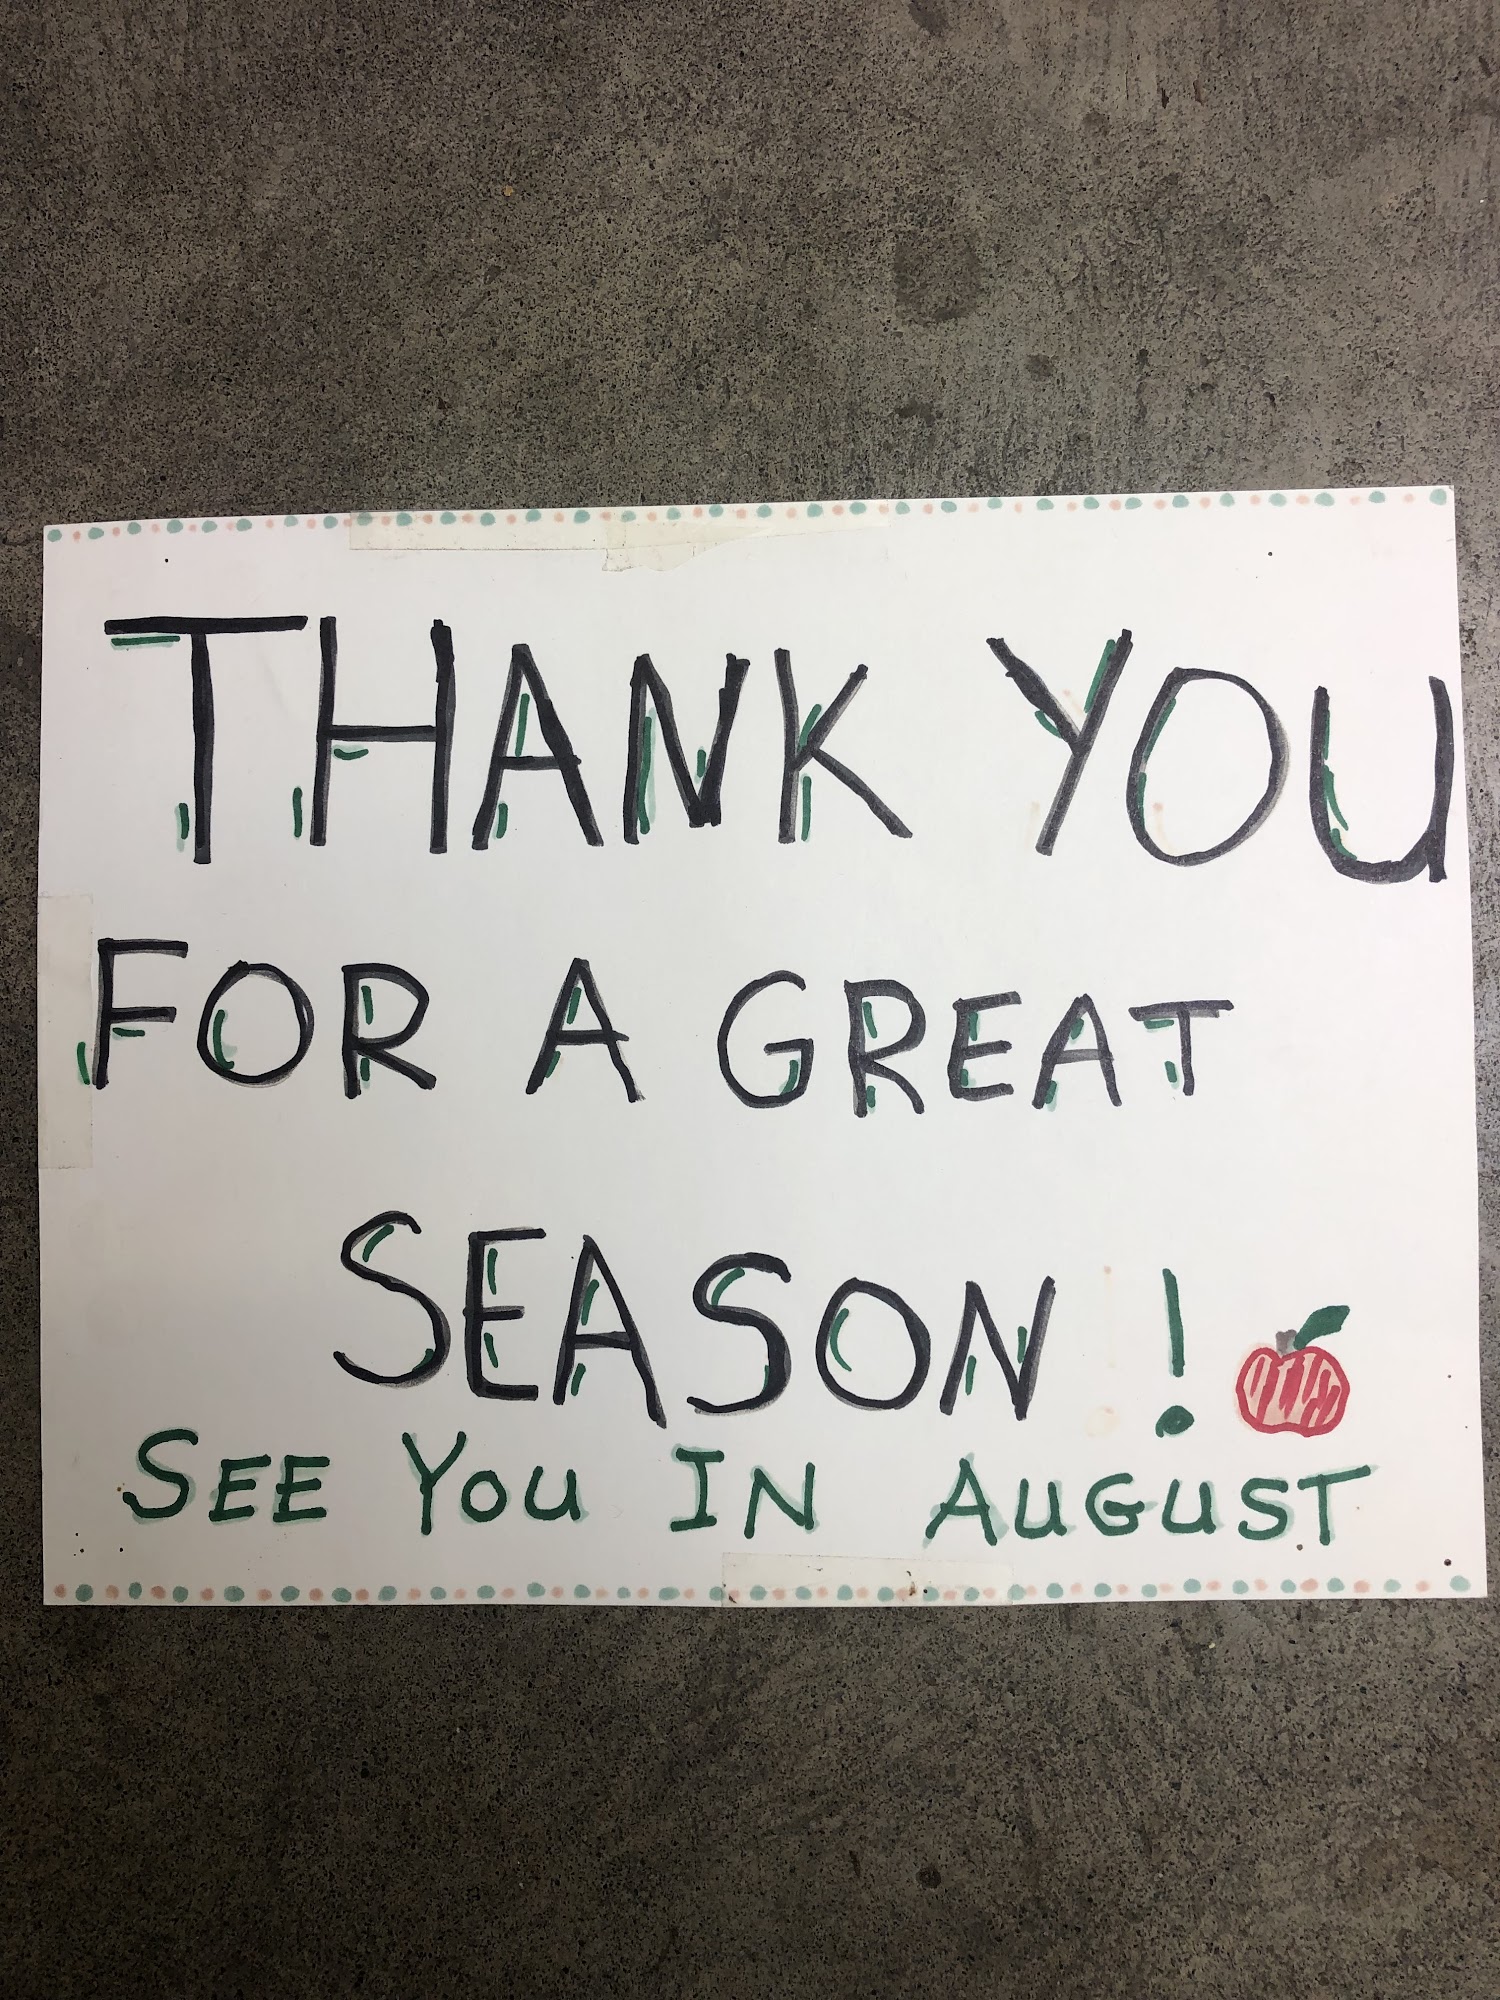 THANK YOU
FOR A GREAT
SEASON !
SEE YOU IN AUGUST